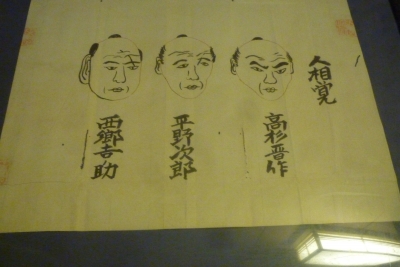 人相覚
高杉晋作
平野次郎
西郷吉助